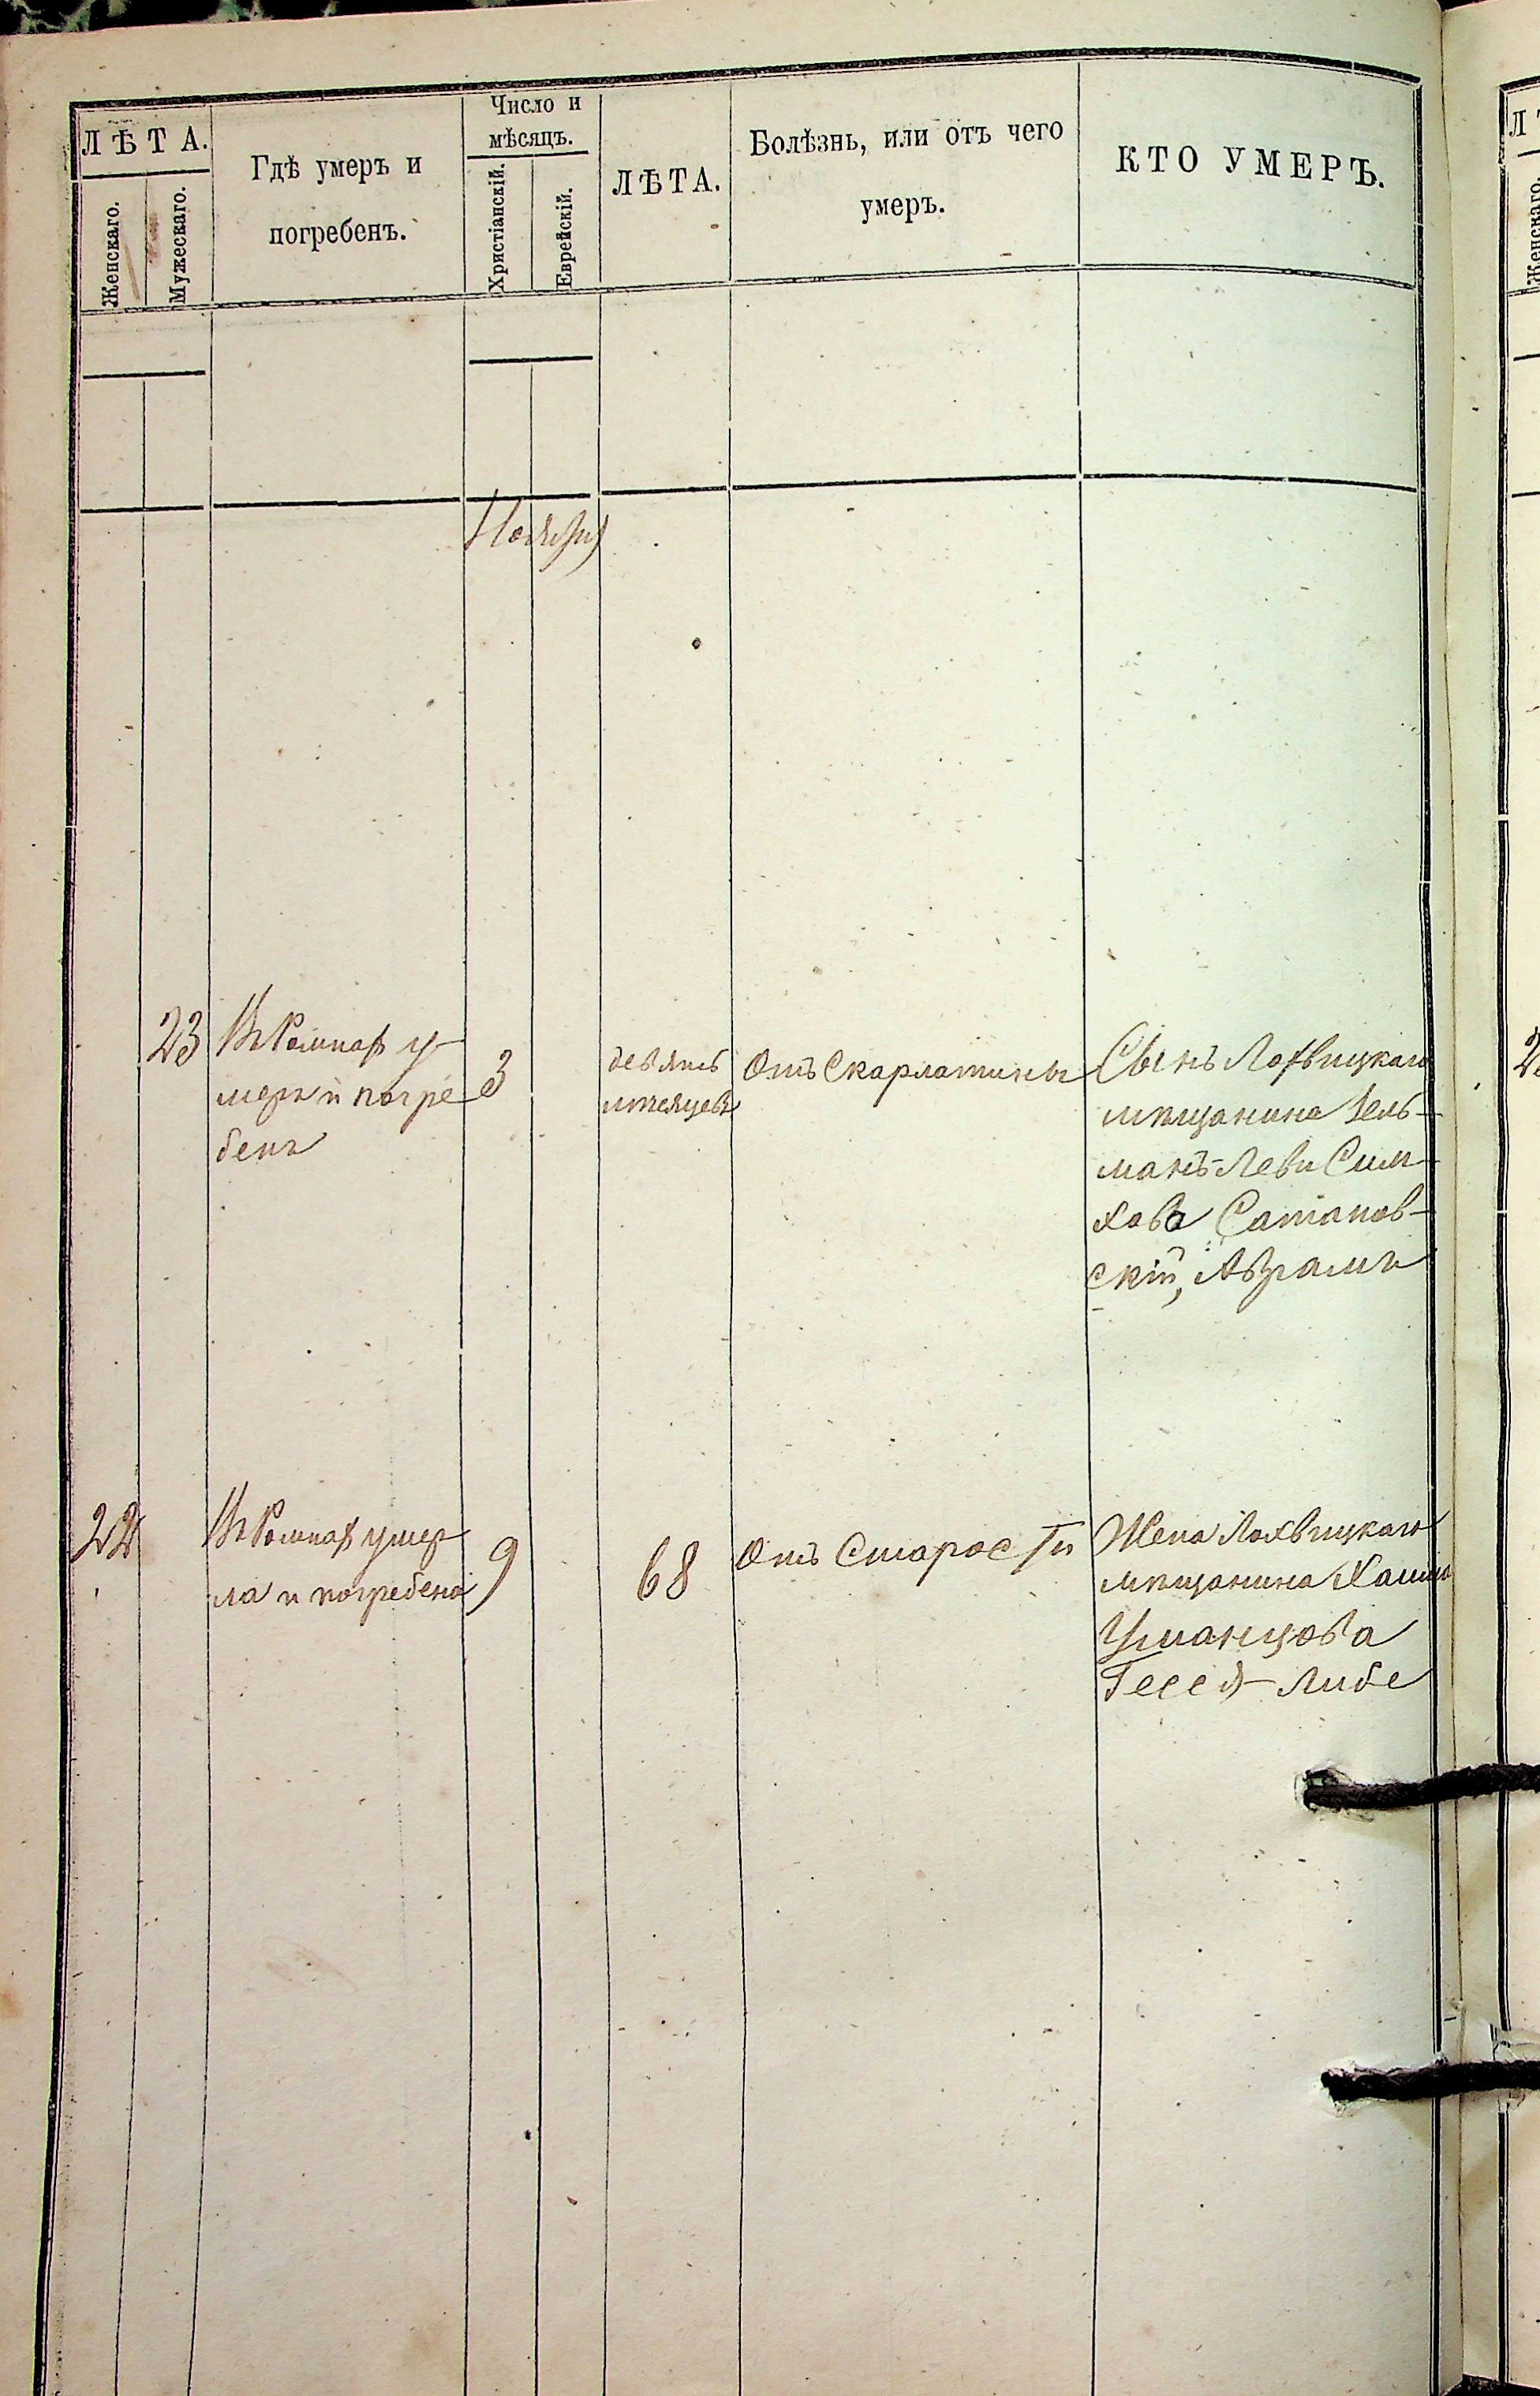 ЛѢТА.
Женскаго.
Мужескаго.
Гдѣ умеръ и
погребенъ.
Число и
мѣсяцъ.
Христіанскій.
Еврейскій.
ЛѢТА.
Болѣзнь, или отъ чего
умеръ.
КТО УМЕРЪ.
Ноября
23
Въ Ромнах у-
меръ и погре
бенъ
3
девять
мѣсяцевъ
Отъ Скарлатины
Сынъ Лохвицкаго
мѣщанина Зель-
манъ-Леви Сим-
хова Сатанов-
скій, Абрамъ
22
Въ Ромнах умер
ла и погребена
9
68
Отъ Старости
Жена Лохвицкаго
мѣщанина
Уманцова
Гесся-Либе